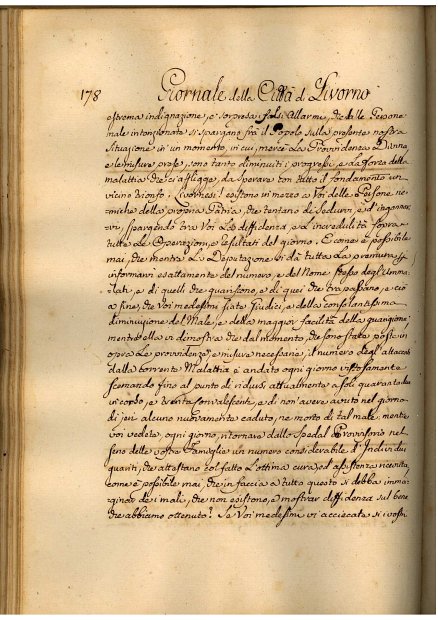 178 Giornale della Città di Livorno
estrema indignazione, e sorpresa i falsi allarmi, che dalle Persone
male intenzionate si spargano frà il Popolo sulla presente nostra
Situazione in un momento, in cui, mercè La Provvidenza Divina,
e le misure prese, sono tanto diminuiti i progressi, e la forza della
malattia che ci affligge, da sperare con tutto il fondamento un
vicino trionfo. Livornesi! esistono in mezzo a Voi delle Persone ne-
miche della propria Patria, che tentano di Sedurvi, e d'ingannar-
vi, spargendo tra Voi La diffidenza, e L'incredulità sovra
tutte Le Operazioni, e resultati del giorno. E come è possibile
mai, che mentre La Deputazione si dà tutta La premura
informarvi esattamente del numero, e del Nome stesso degl'Amma-
lati, e di quelli che guariscono, e di quei che trapassano, e ciò
a fine, che Voi medesimi siate Giudici, e della consolantissima
diminuzione del Male, e della maggior facilità della guarigione
mentre ella vi dimostra che dal momento, che sono state poste in
opra Le provvidenze, e misure necessarie, il numero degl'attaccati
dalla corrente Malattia è andato ogni giorno vistosamente
scemando fino al punto di ridursi attualmente a soli quaranta due
in corso, e trenta convalescenti, e di non avere avuto nel giorno
di jeri alcuno nuovamente caduto, ne morto di tal male, mentre
voi vedete, ogni giorno, ritornare dallo Spedal Provvisorio nel
seno delle vostre Famiglie un numero considerabile d'Individui
guariti, che attestano col fatto L'ottima cura, ed assistenza ricevuta
come è possibile mai, che in faccia a tutto questo si debba imma-
ginar de i mali, che non esistono, e mostrar diffidenza sul bene
che abbiamo ottenuto? Se Voi medesimi vi acciecate si i vostri